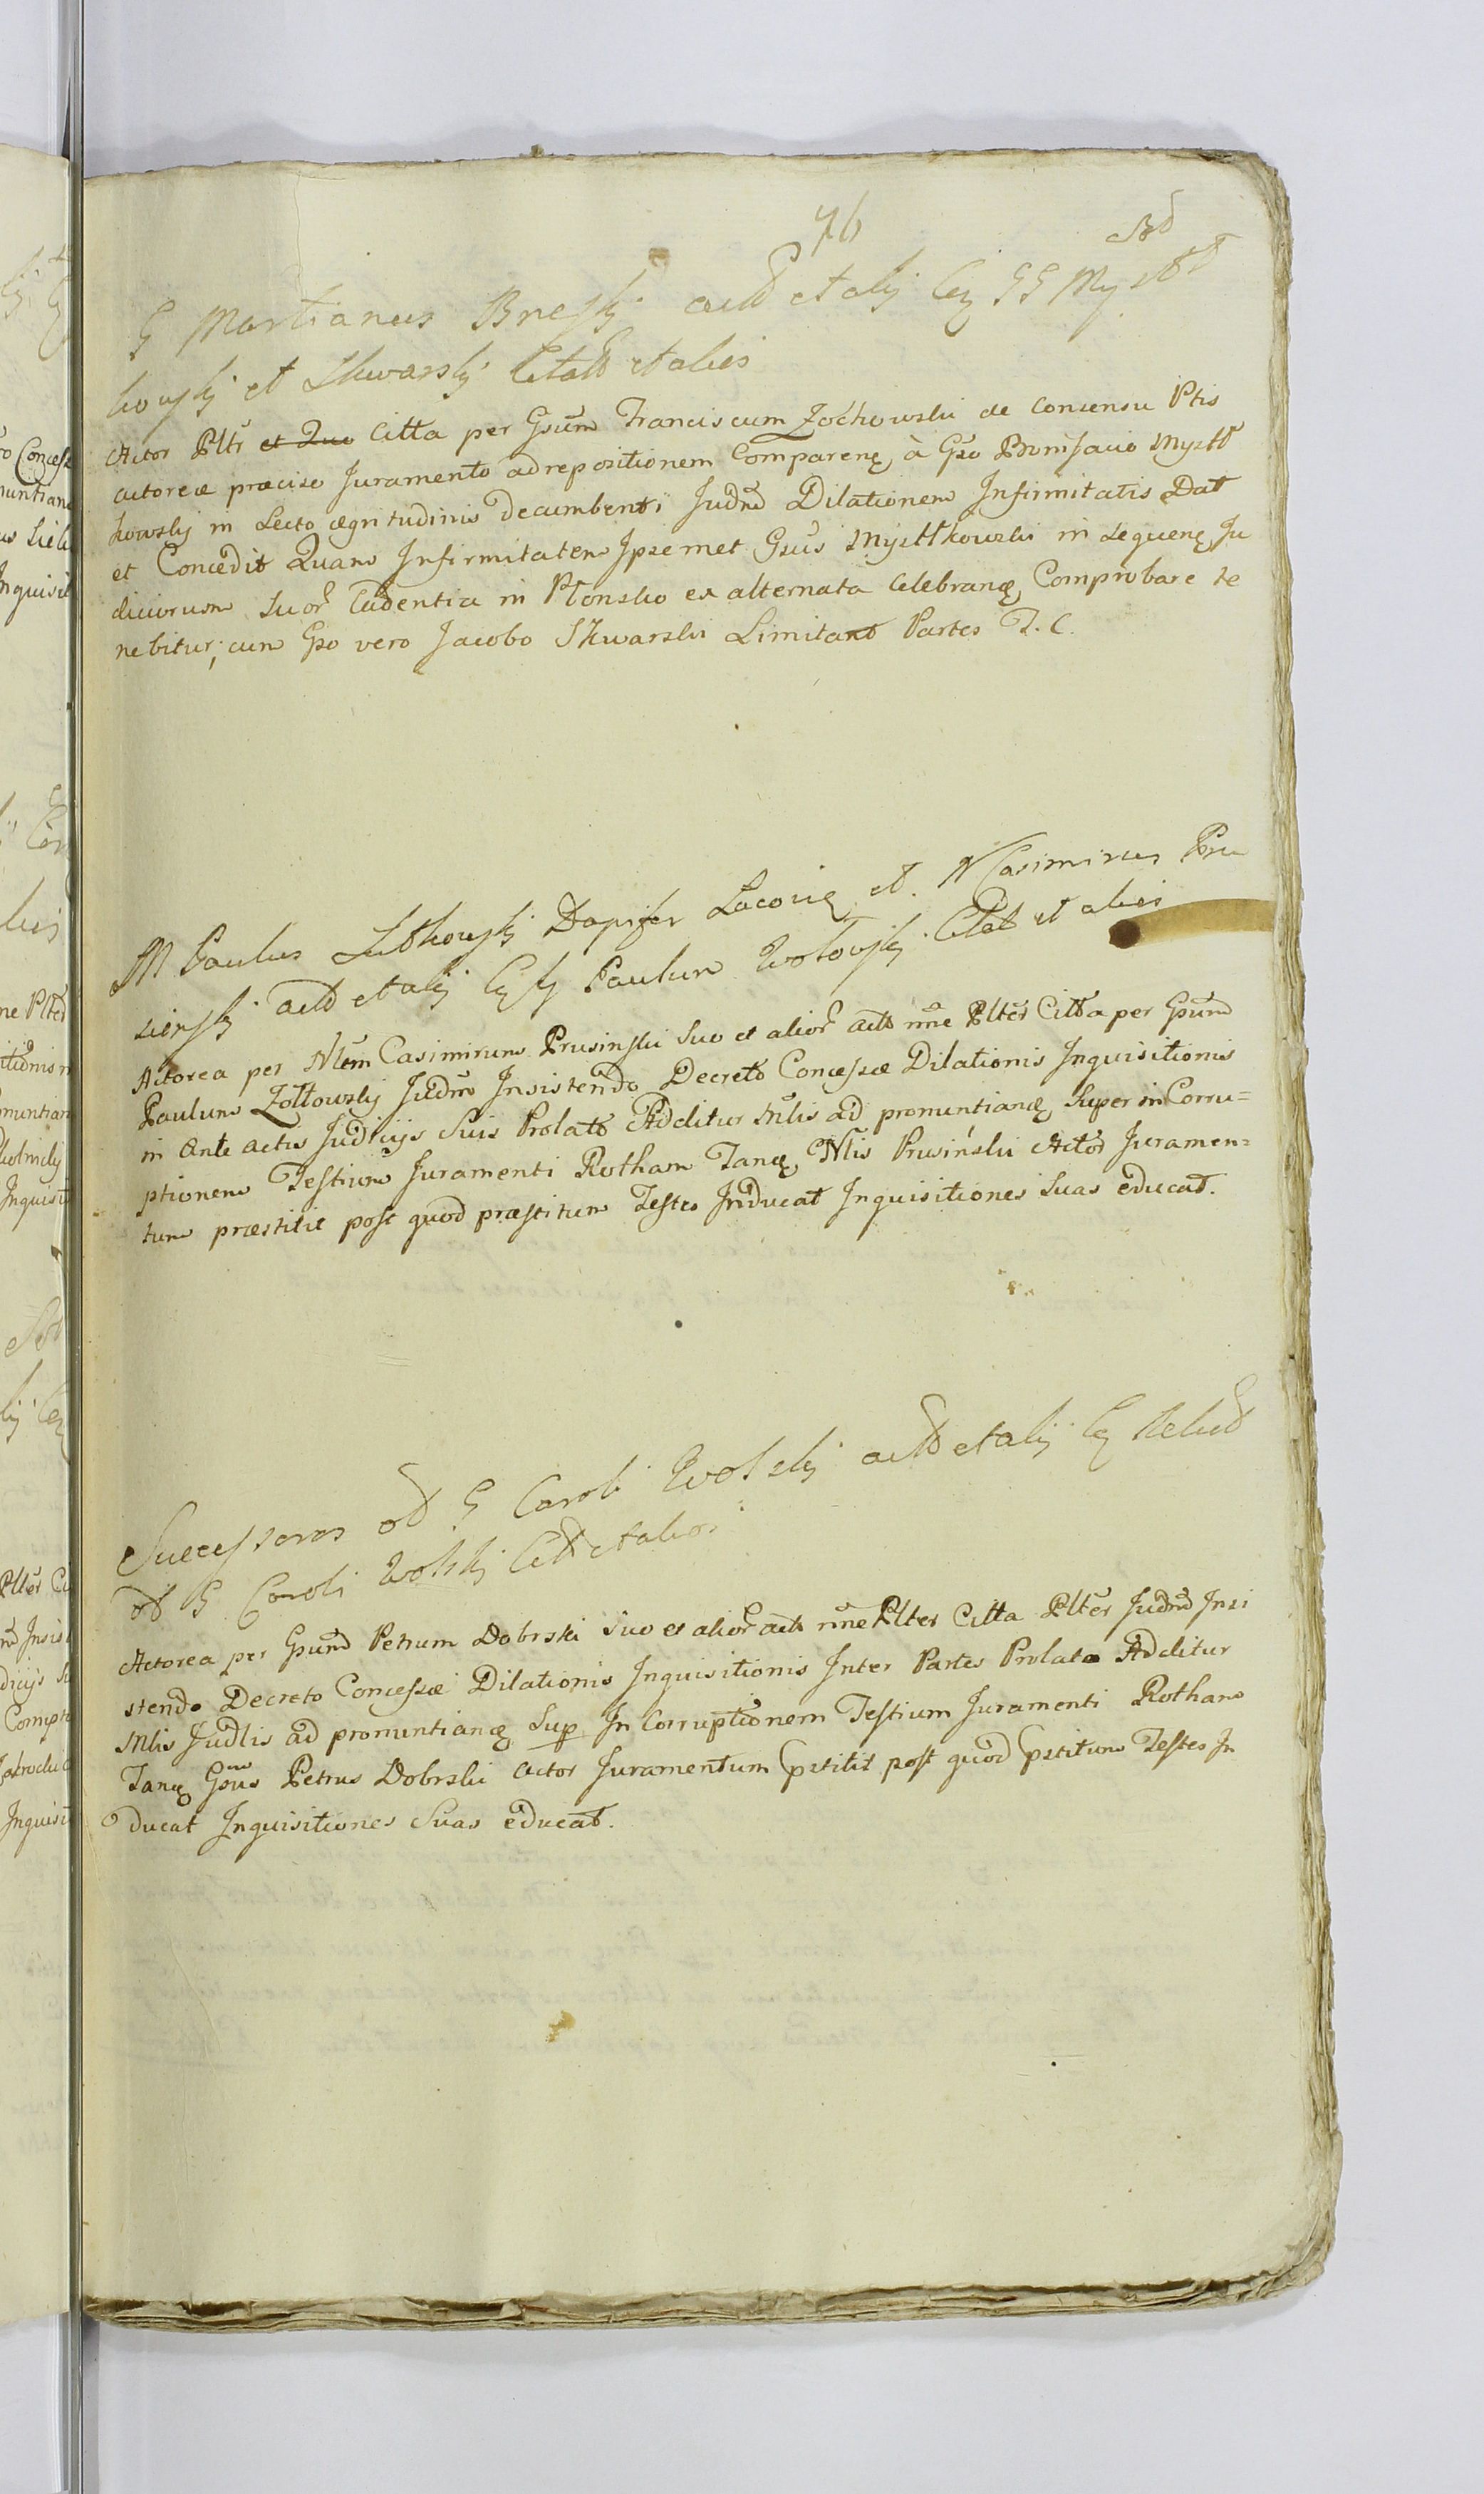 76
G Martianus Breski actt et alij Cey GG Mystt
kowskj et Skwarskj Citatt et alios
Actor Pltr et Quo Citta per Gsum Franciscum Zochowski de Consensu Ptis
actoreæ præciso Juramento ad repositionem Comparenę à Gso Bonifacio Mystt
kowskj in Lecto ægritudinis decumbenti Judnd Dilationem Infirmitatis Dat
et Concedit Quam Infirmitatem Ipsemet Gsus Mysttkowski in sequenę Ju
diciorum suor Cadentia in Płonsko ex alternata Celebranę Comprobare te
nebitur; cum Gso vero Jacobo Skwarski Limitant Partes T. C.
M Paulus Lutkowskj Dapifer Laconię et N Casimirus Pru
sienskj actt et alij Cey Paulum Zołtowskj Citat et alios
Actorea per Nlem Casimirum Prusinski suo et alior actt nne Plter Citta per Gsum
Paulum Zołtowskj Judm Insistendo Decreto Concessæ Dilationis Inquisitionis
in ante actis Judicijs Suis Prolato Additur Mlis ad pronuntianę Super in Corru=
ptionem Testium Juramenti Rotham Tanę Nlis Prusinski Actor Juramen=
tum præstitit post quod præstitum Testes Inducat Inquisitiones Suas educat.
Successores od G Caroli Wolskj actt et alij Cey Relict
od G Caroli Wolskj Citt et alios
Actorea per Gsum Petrum Dobrski suo et alior actt nne Plter Citta Plter Judnd Insi
stendo Decreto Concessæ Dilationis Inquisitionis Inter Partes Prolato Additur
Mlis Judlis ad pronuntianę Sup In Corruptionem Testium Juramenti Rotham
Tanę Gsus Petrus Dobrski actor Juramentum pstitit post quod pstitum Testes In
ducat Inquisitiones Suas educat.